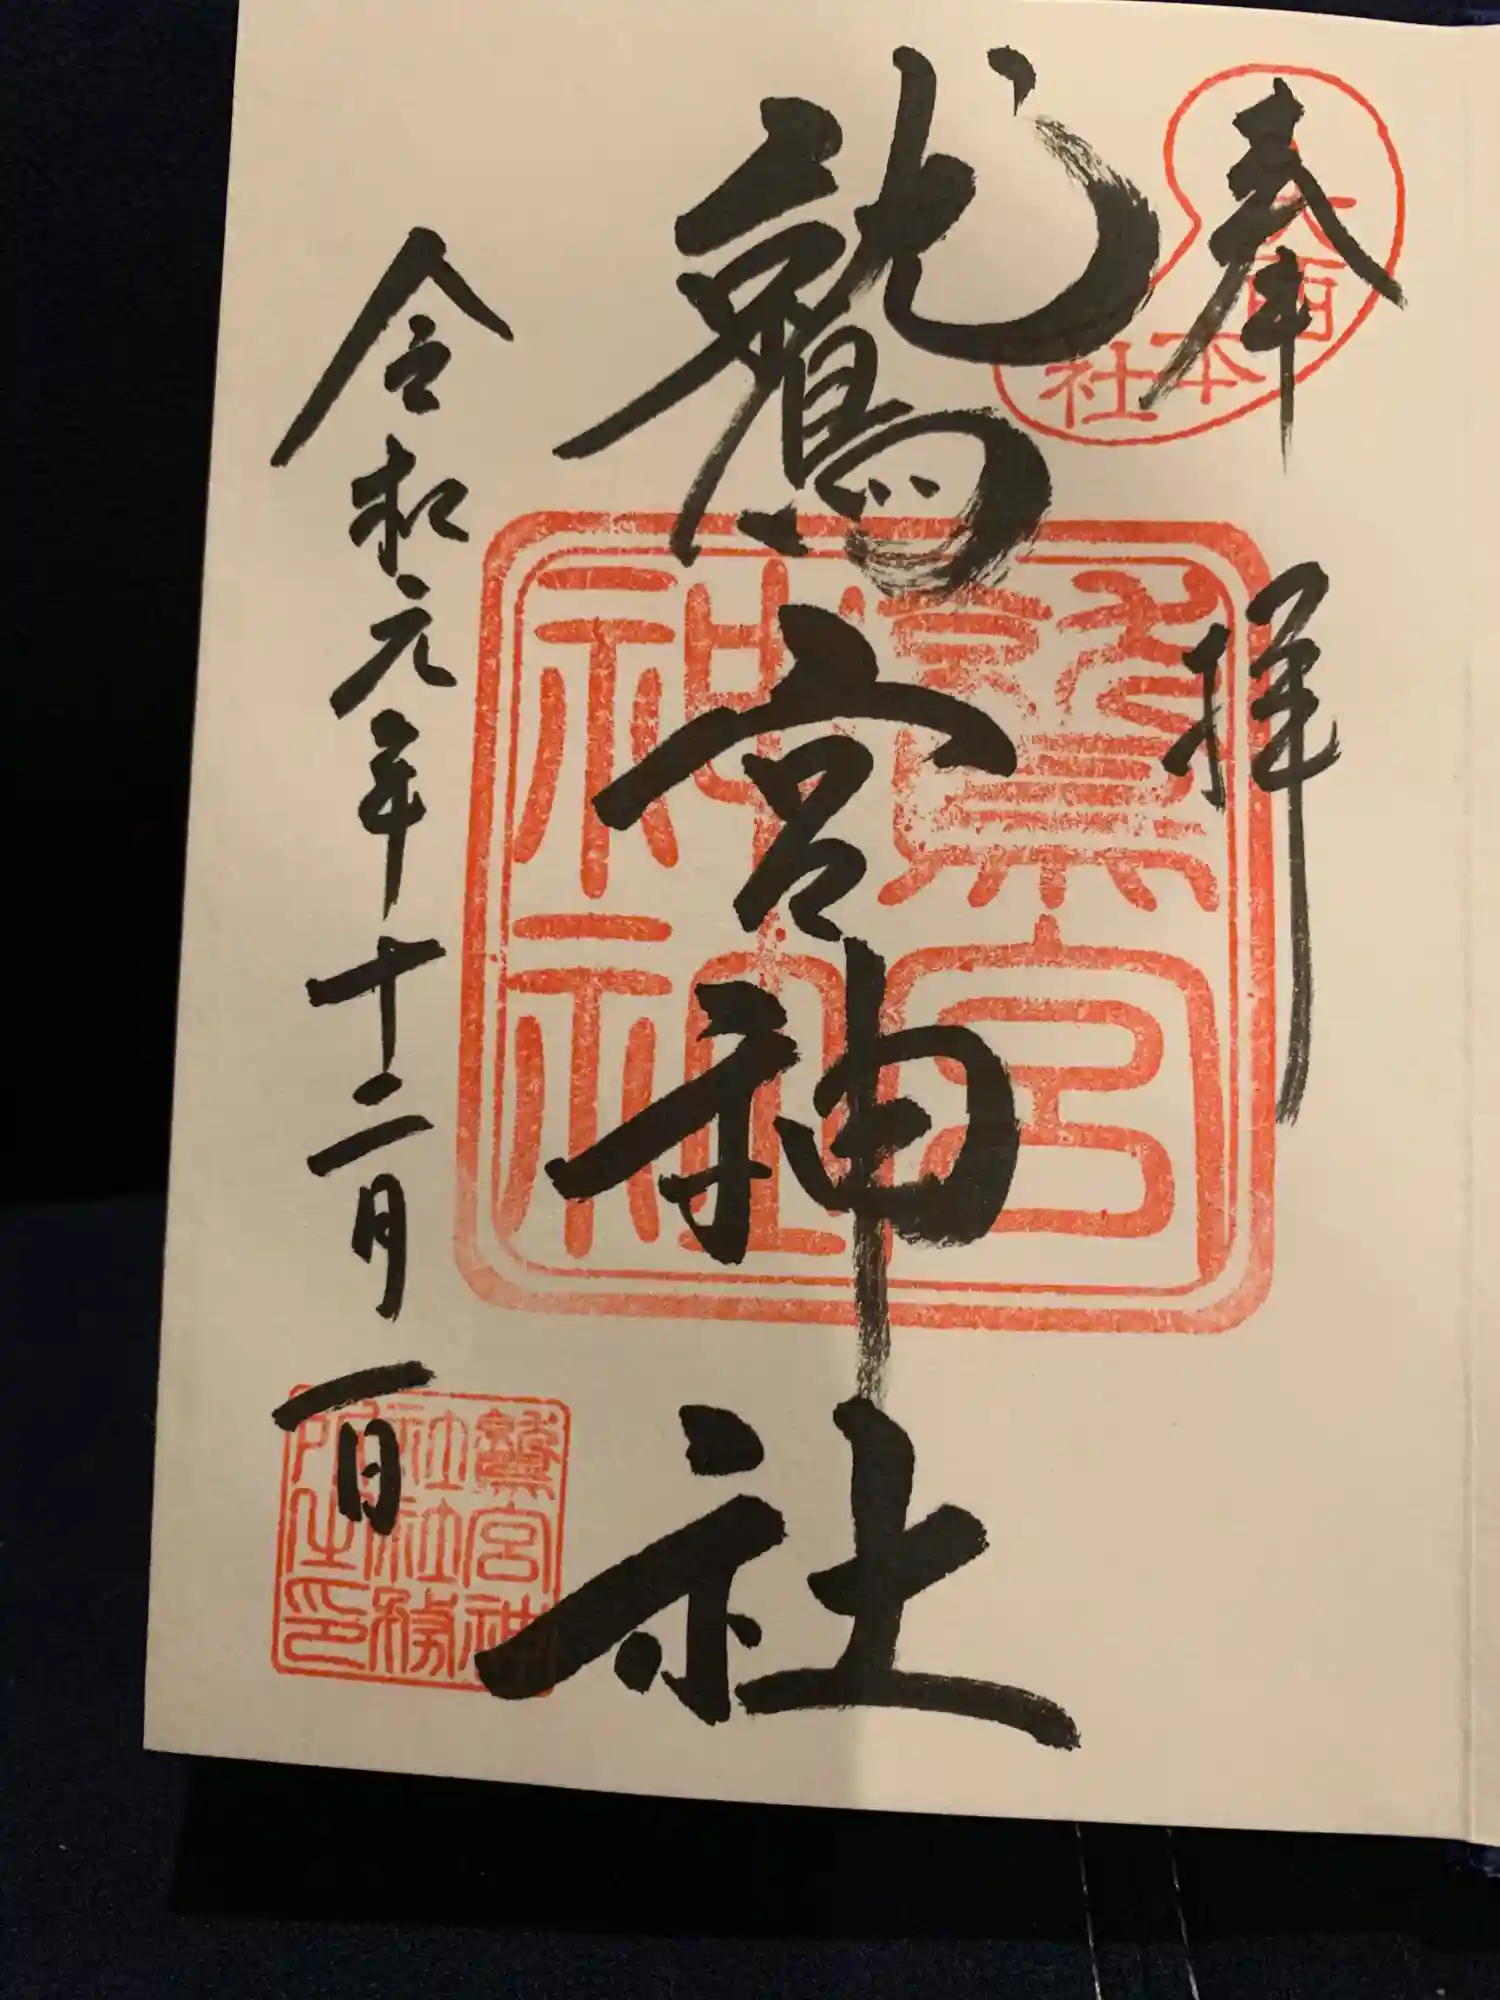 奉拝
大酉本社
鷲宮神社
鷲宮
神社
令和元年十二月一日
鷲宮神
社社務
所之印